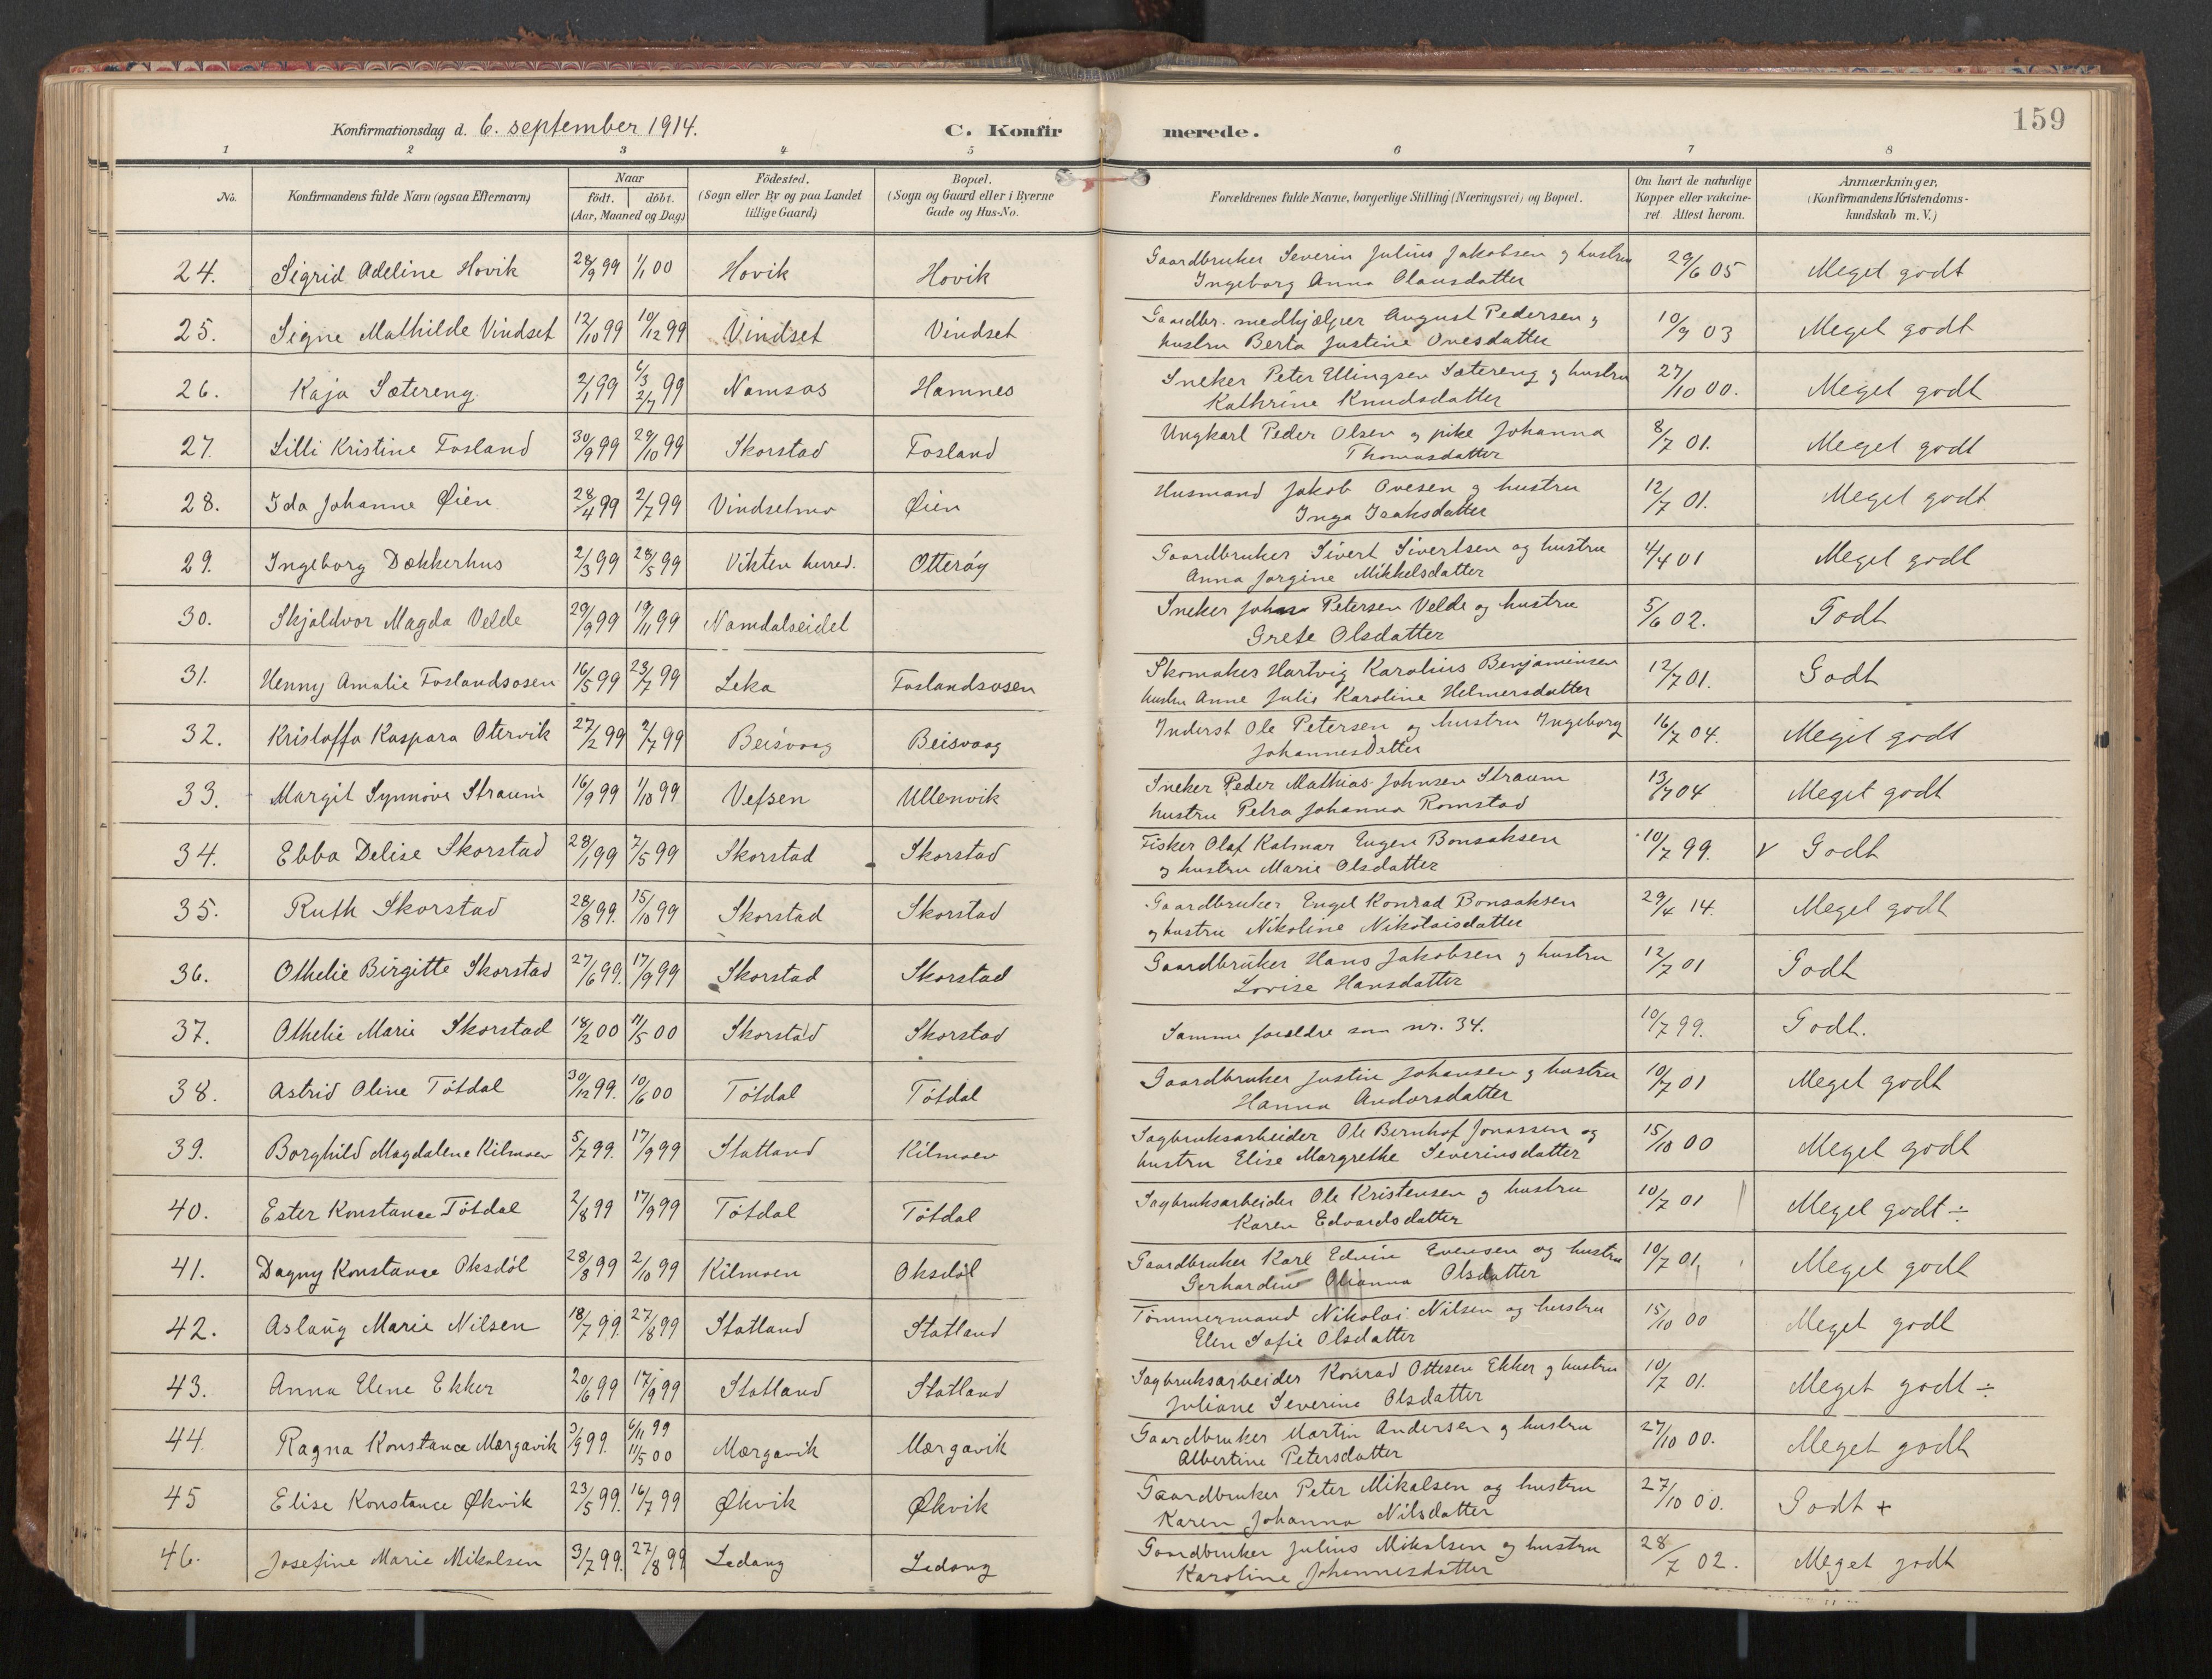 Konfirmationsdag d. 6. september 1914. C. Konfir merede. 159
1 2 3 4 5 6 7 8
No. Konfirmandens fulde Navn (ogsaa Efternavn) Naar født. døbt. (Aar, Maaned og Dag) Fødested. (Sogn eller By og paa Landet tillige Gaard) Bopæl. (Sogn og Gaard eller i Byerne Gade og Hus-No. Forældrenes fulde Navne, borgerlige Stilling (Næringsvei) og Bopæl. Om havt de naturlige Kopper eller vakcineret. Attest herom. Anmærkninger. (Konfirmandens Kristendomskundskab m. V.)
24. Sigrid Adeline Hovik 28/9 99 1/1 00 Hovik Hovik Gaardbruker Severin Julius Jakobsen og hustru 29/6 05 Meget godt
Ingeborg Anna Olausdatter
25. Signe Mathilde Vindset 12/10 99 10/12 99 Vindset Vindset Gaardbr. medhjælper August Pedersen og 10/9 03 Meget godt
hustru Berta Justine Ovesdatter
26. Kaja Sætereng 2/1 99 6/3 2/7 99 Namsos Hamnes Sneker Peter Ellingsen Sætereng og hustru 27/10 00. Meget godt
Kathrine Knudsdatter
27. Lilli Kristine Fosland 30/9 99 29/10 99 Skorstad Fosland Ungkarl Peder Olsen og pike Johanna 8/7 01. Meget godt
Thomasdatter
28. Ida Johanne Øien 28/4 99 2/7 99 Vindsetmo Øien Husmand Jakob Ovesen og hustru 12/7 01. Meget godt
Inga Isaksdatter
29. Ingeborg Dækkerhus 2/3 99 28/5 99 Vikten herred. Otterøy Gaardbruker Sivert Sivertsen og hustru 4/4 01 Meget godt
Anna Jørgine Mikkelsdatter
30. Skjaldvor Magda Velde 29/9 99 19/11 99 Namdalseidet Sneker Johan Petersen Velde og hustru 5/6 02. Godt
Grete Olsdatter
31. Henny Amalie Foslandsosen 16/5 99 23/7 99 Leka Foslandsosen Skomaker Hartvig Karolius Benjaminsen 12/7 01. Godt
hustru Anne Julie Karoline Helmersdatter
32. Kristoffa Kaspara Otervik 27/2 99 2/7 99 Beisvaag Beisvaag Inderst Ole Petersen og hustru Ingeborg 16/7 04. Meget godt
Johannesdatter
33. Margit Synnøve Straum 16/9 99 1/10 99 Vefsen Ullenvik Sneker Peder Mathias Johnsen Straum 13/7 04 Meget godt
hustru Petra Johanna Romstad
34. Ebba Delise Skorstad 28/1 99 7/5 99 Skorstad Skorstad Fisker Olaf Kalmar Eugen Bonsaksen 10/7 99. V Godt
og hustru Marie Olsdatter
35. Ruth Skorstad 28/8 99. 15/10 99 Skorstad Skorstad Gaardbruker Engel Konrad Bonsaksen 29/4 14. Meget godt
og hustru Nikoline Nikolaisdatter
36. Othelie Birgitte Skorstad 27/6 99. 17/9 99 Skorstad Skorstad Gaardbruker Hans Jakobsen og hustru 12/7 01 Godt
Lovise Hansdatter
37. Othelie Marie Skorstad 18/2 00 11/5 00 Skorstad Skorstad Samme forældre som nr. 34. 10/7 99. Godt.
38. Astrid Oline Tøtdal 30/12 99. 10/6 00 Tøtdal Tøtdal Gaardbruker Justin Johansen og hustru 10/7 01 Meget godt
Hanna Andorsdatter
39. Borghild Magdalene Kilmoen 5/7 99. 17/9 99 Statland Kilmoen Sagbruksarbeider Ole Bernhof Jonassen og 15/10 00 Meget godt
hustru Elise Margrethe Severinsdatter
40. Ester Konstance Tøtdal 2/8 99 17/9 99 Tøtdal Tøtdal Sagbruksarbeider Ole Kristensen og hustru 10/7 01 Meget godt ÷
Karen Edvardsdatter
41. Dagny Konstance Oksdøl 28/8 99 2/10 99 Kilmoen Oksdøl Gaardbruker Karl Edvin Evensen og hustru 10/7 01. Meget godt
Gerhardine Olianna Olsdatter
42. Aslaug Marie Nilsen 18/7 99. 27/8 99 Statland Statland Tømmermand Nikolai Nilsen og hustru 15/10 00 Meget godt
Elen Sofie Olsdatter
43. Anna Elene Ekker 20/6 99 17/9 99 Statland Statland Sagbruksarbeider Konrad Ottesen Ekker og hustru 10/7 01. Meget godt ÷
Juliane Severine Olsdatter
44. Ragna Konstance Mørgavik 3/9 99. 6/11 99 11/5 00 Mørgavik Mørgavik Gaardbruker Martin Andersen og hustru 27/10 00. Meget godt
Albertine Petersdatter
45 Elise Konstance Økvik 23/5 99. 16/7 99 Økvik Økvik Gaardbruker Peter Mikalsen og hustru 27/10 00. Godt +
Karen Johanna Nilsdatter
46. Josefine Marie Mikalsen 3/7 99. 27/8 99 Ledang Ledang Gaardbruker Julius Mikalsen og hustru 28/7 02. Meget godt
Karoline Johannesdatter